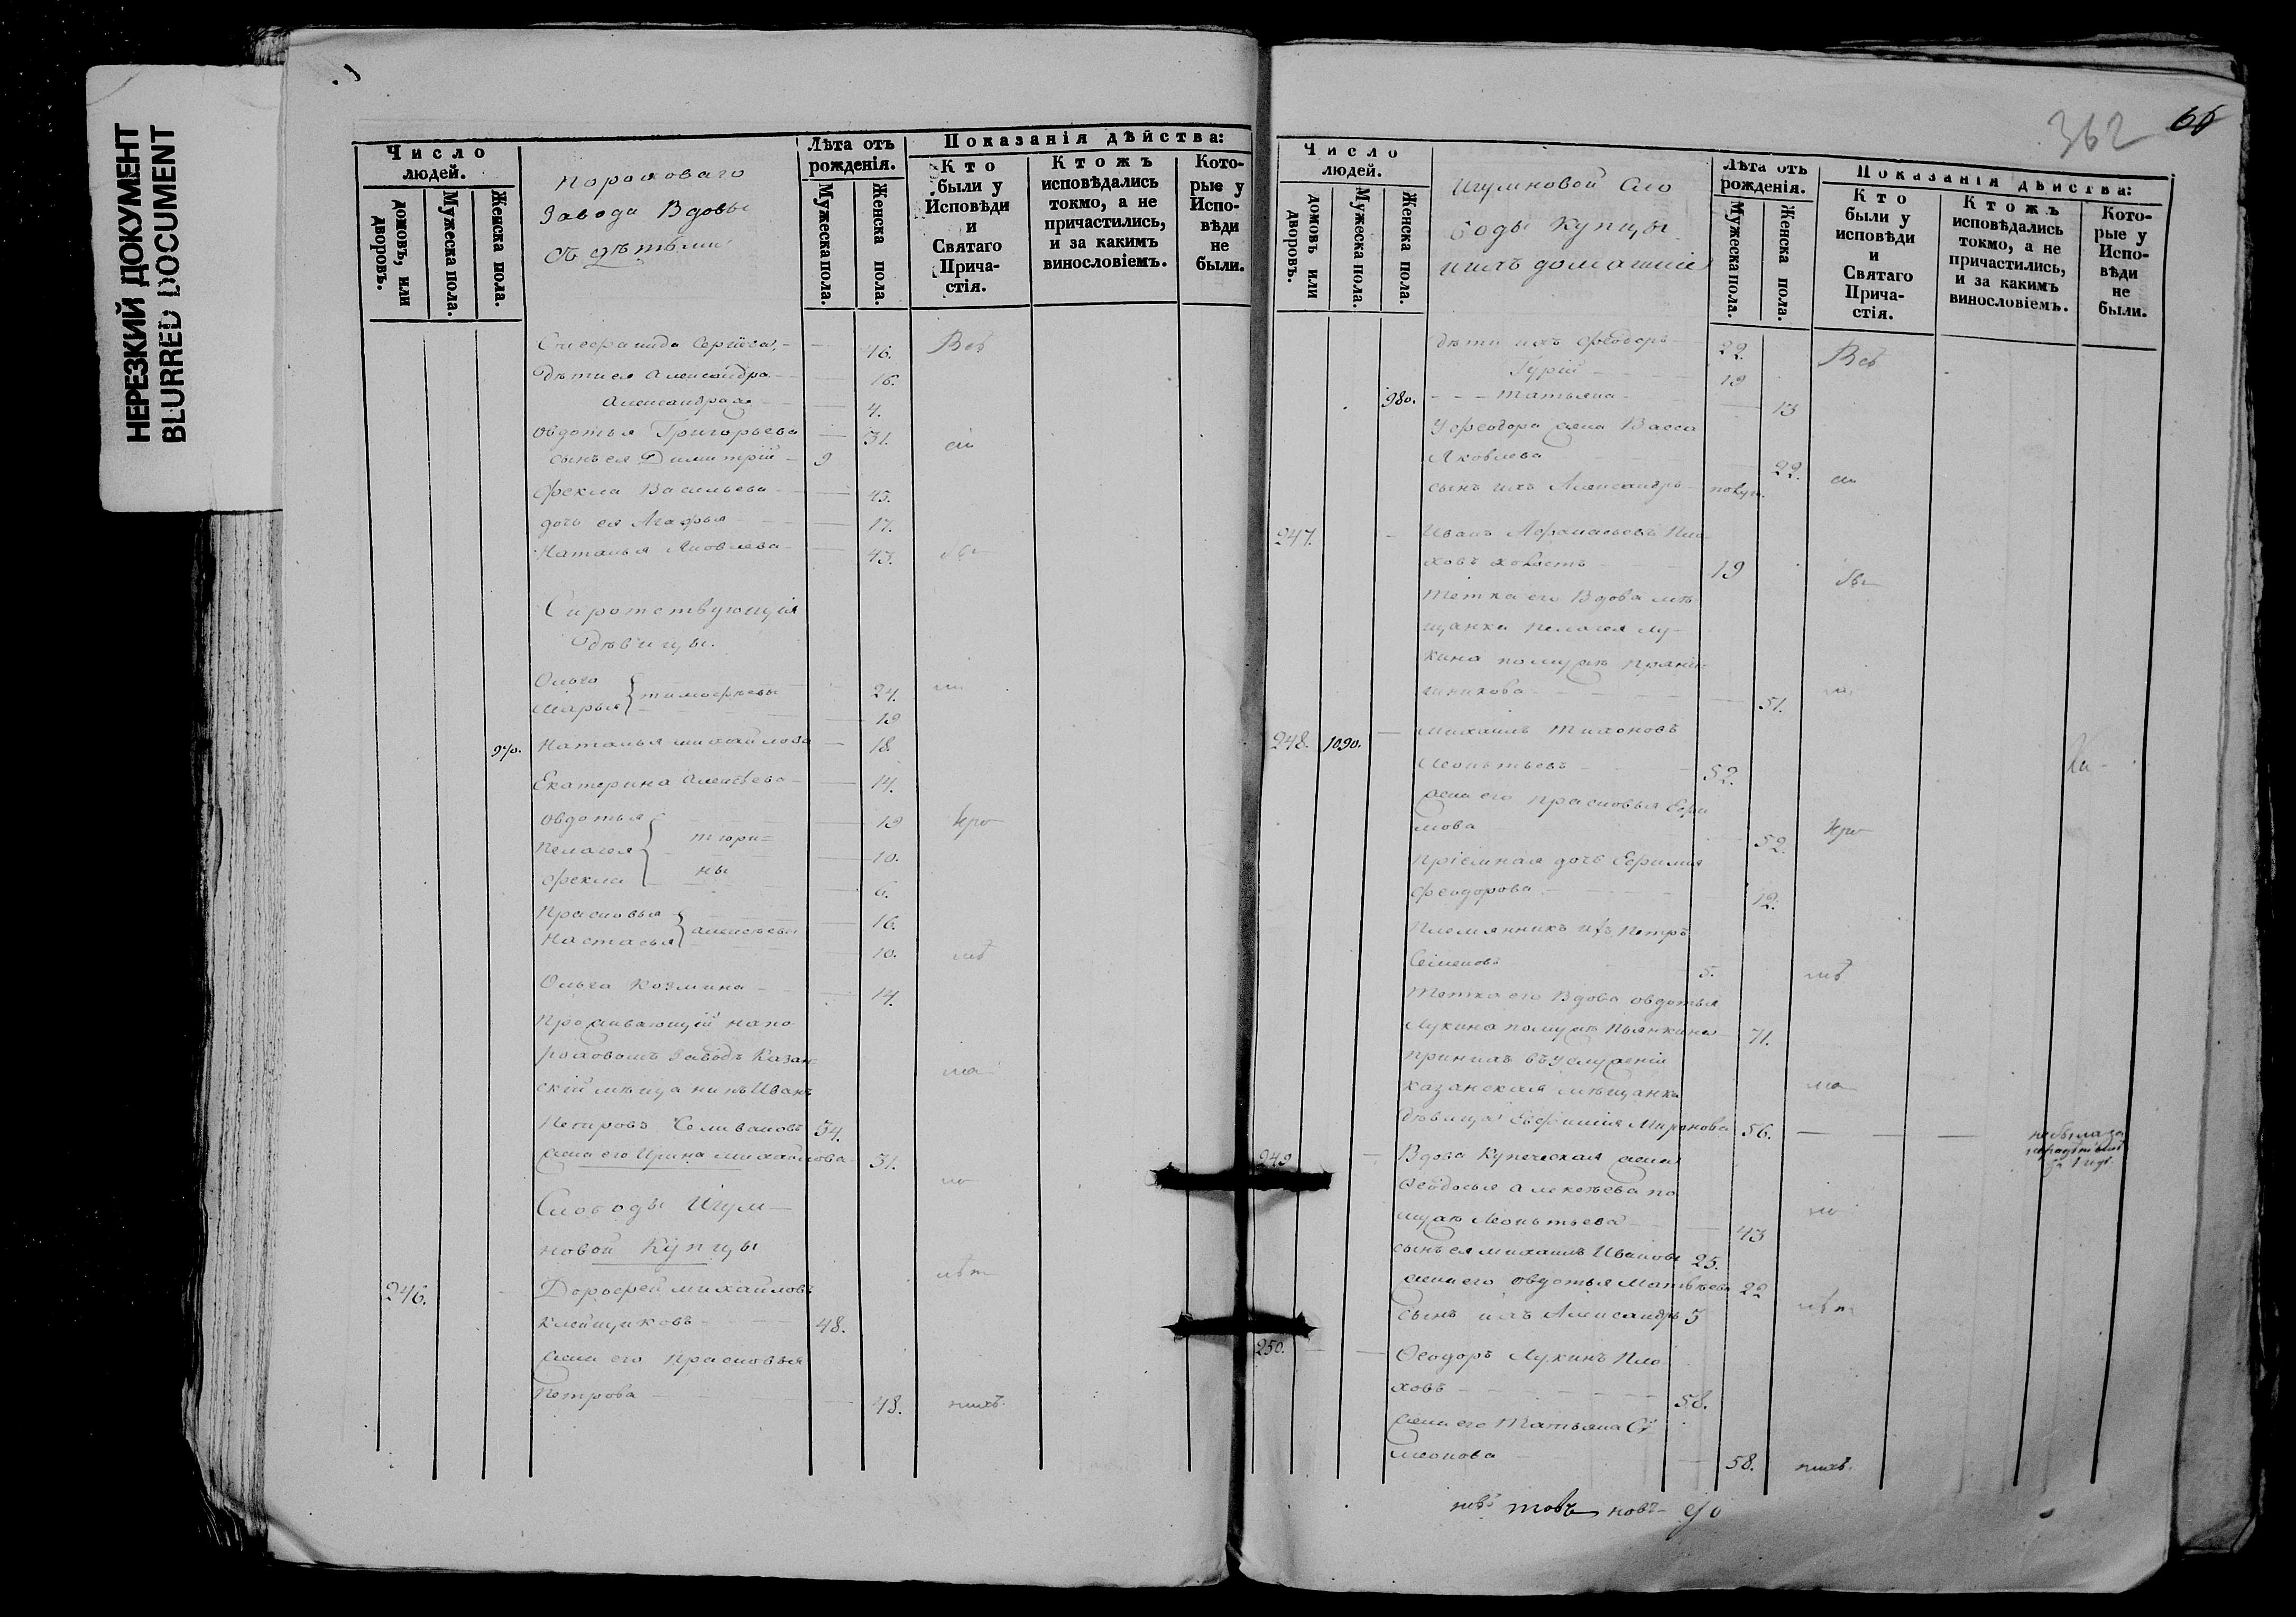 НЕРЕЗКИЙ ДОКУМЕНТ
BLURRED DOCUMENT
Число людей.
домовъ, или дворовъ.
Мужеска пола.
Женска пола.
Пороховаго
Завода Вдовы
съ дѣтьми
Лѣта отъ рожденія.
Мужеска пола.
Женска пола.
Показанія дѣйства:
Кто были у Исповѣди и Святаго Прича-стія.
Ктожъ исповѣдались токмо, а не причастились, и за какимъ винословіемъ.
Кото-рые у Испо-вѣди не были.
Сергіева 46. Всѣ
Дѣти ея Александра 16.
Александра 4.
Овдотья Григорьева 31.
сынъ ея Димитрій 9
Фекла Васильева 43.
дочь ея Агафья 17.
Наталья Яковлева 43.
Сиротствующія
Дѣвицы.
Ольга 24.
Марья Тимофѣевы 19
970. Наталья Михайлова 18.
Екатерина Алексѣева 14.
Овдотья 19
Пелагея Тюри= 10.
Фекла ны 6.
Прасковья 16.
Настасья Алексѣевы 10.
Ольга Козмина 14.
Проживающій на по-
роховомъ заводѣ Казан-
скій мѣщанинъ Иванъ
Петровъ Селивановъ 34.
жена его Ирина Михайлова 31.
Слободы Игум-
новой Купцы
246. Дорофей Михайловъ
Клейщиковъ 48.
жена его Прасковья
Петрова 48.
362
66
Число людей.
домовъ или дворовъ.
Мужеска пола.
Женска пола.
Игумновой Сло
боды Купцы
ихъ домашніе
Лѣта отъ рожденія.
Мужеска пола.
Женска пола.
Показанія дѣйства:
Кто были у исповѣди и Святаго Прича-стія.
Ктожъ исповѣдались токмо, а не причастились, и за какимъ винословіемъ.
Кото-рые у Испо-вѣди не были.
дѣти ихъ Феодоръ 22. Всѣ
Гурій 19
980. Татьяна 13
У Феодора жена Васса
Яковлева 22.
сынъ ихъ Александръ полуг.
247. Иванъ Афонасьевъ Пло-
ховъ холостъ 19
Тетка его Вдова мѣ
щанка Пелагея Лу-
кина по мужѣ Пряни-
шникова 51.
248. 1090. Михаилъ Тихоновъ
Леонтьевъ 52.
жена его Прасковья Ефи
мова 52.
Пріемная дочь Ефимія
Феодорова 12.
Племянникъ ихъ Петръ
Семеновъ 5.
Тетка его Вдова Овдотья
Лукина по мужѣ Пьянкина 71.
при нихъ въ услуженіи
казанская мѣщанка
дѣвица Евфимія Миронова 56.
249 Вдова Купеческая жена
Феодосья Алексѣева по
мужѣ Леонтьева 43
сынъ ея Михаилъ Ивановъ 25.
жена его Овдотья Матвѣева 22
сынъ ихъ Александръ 3
250. Феодоръ Лукинъ Пло-
ховъ 58.
жена его Татьяна Си
меонова 58.